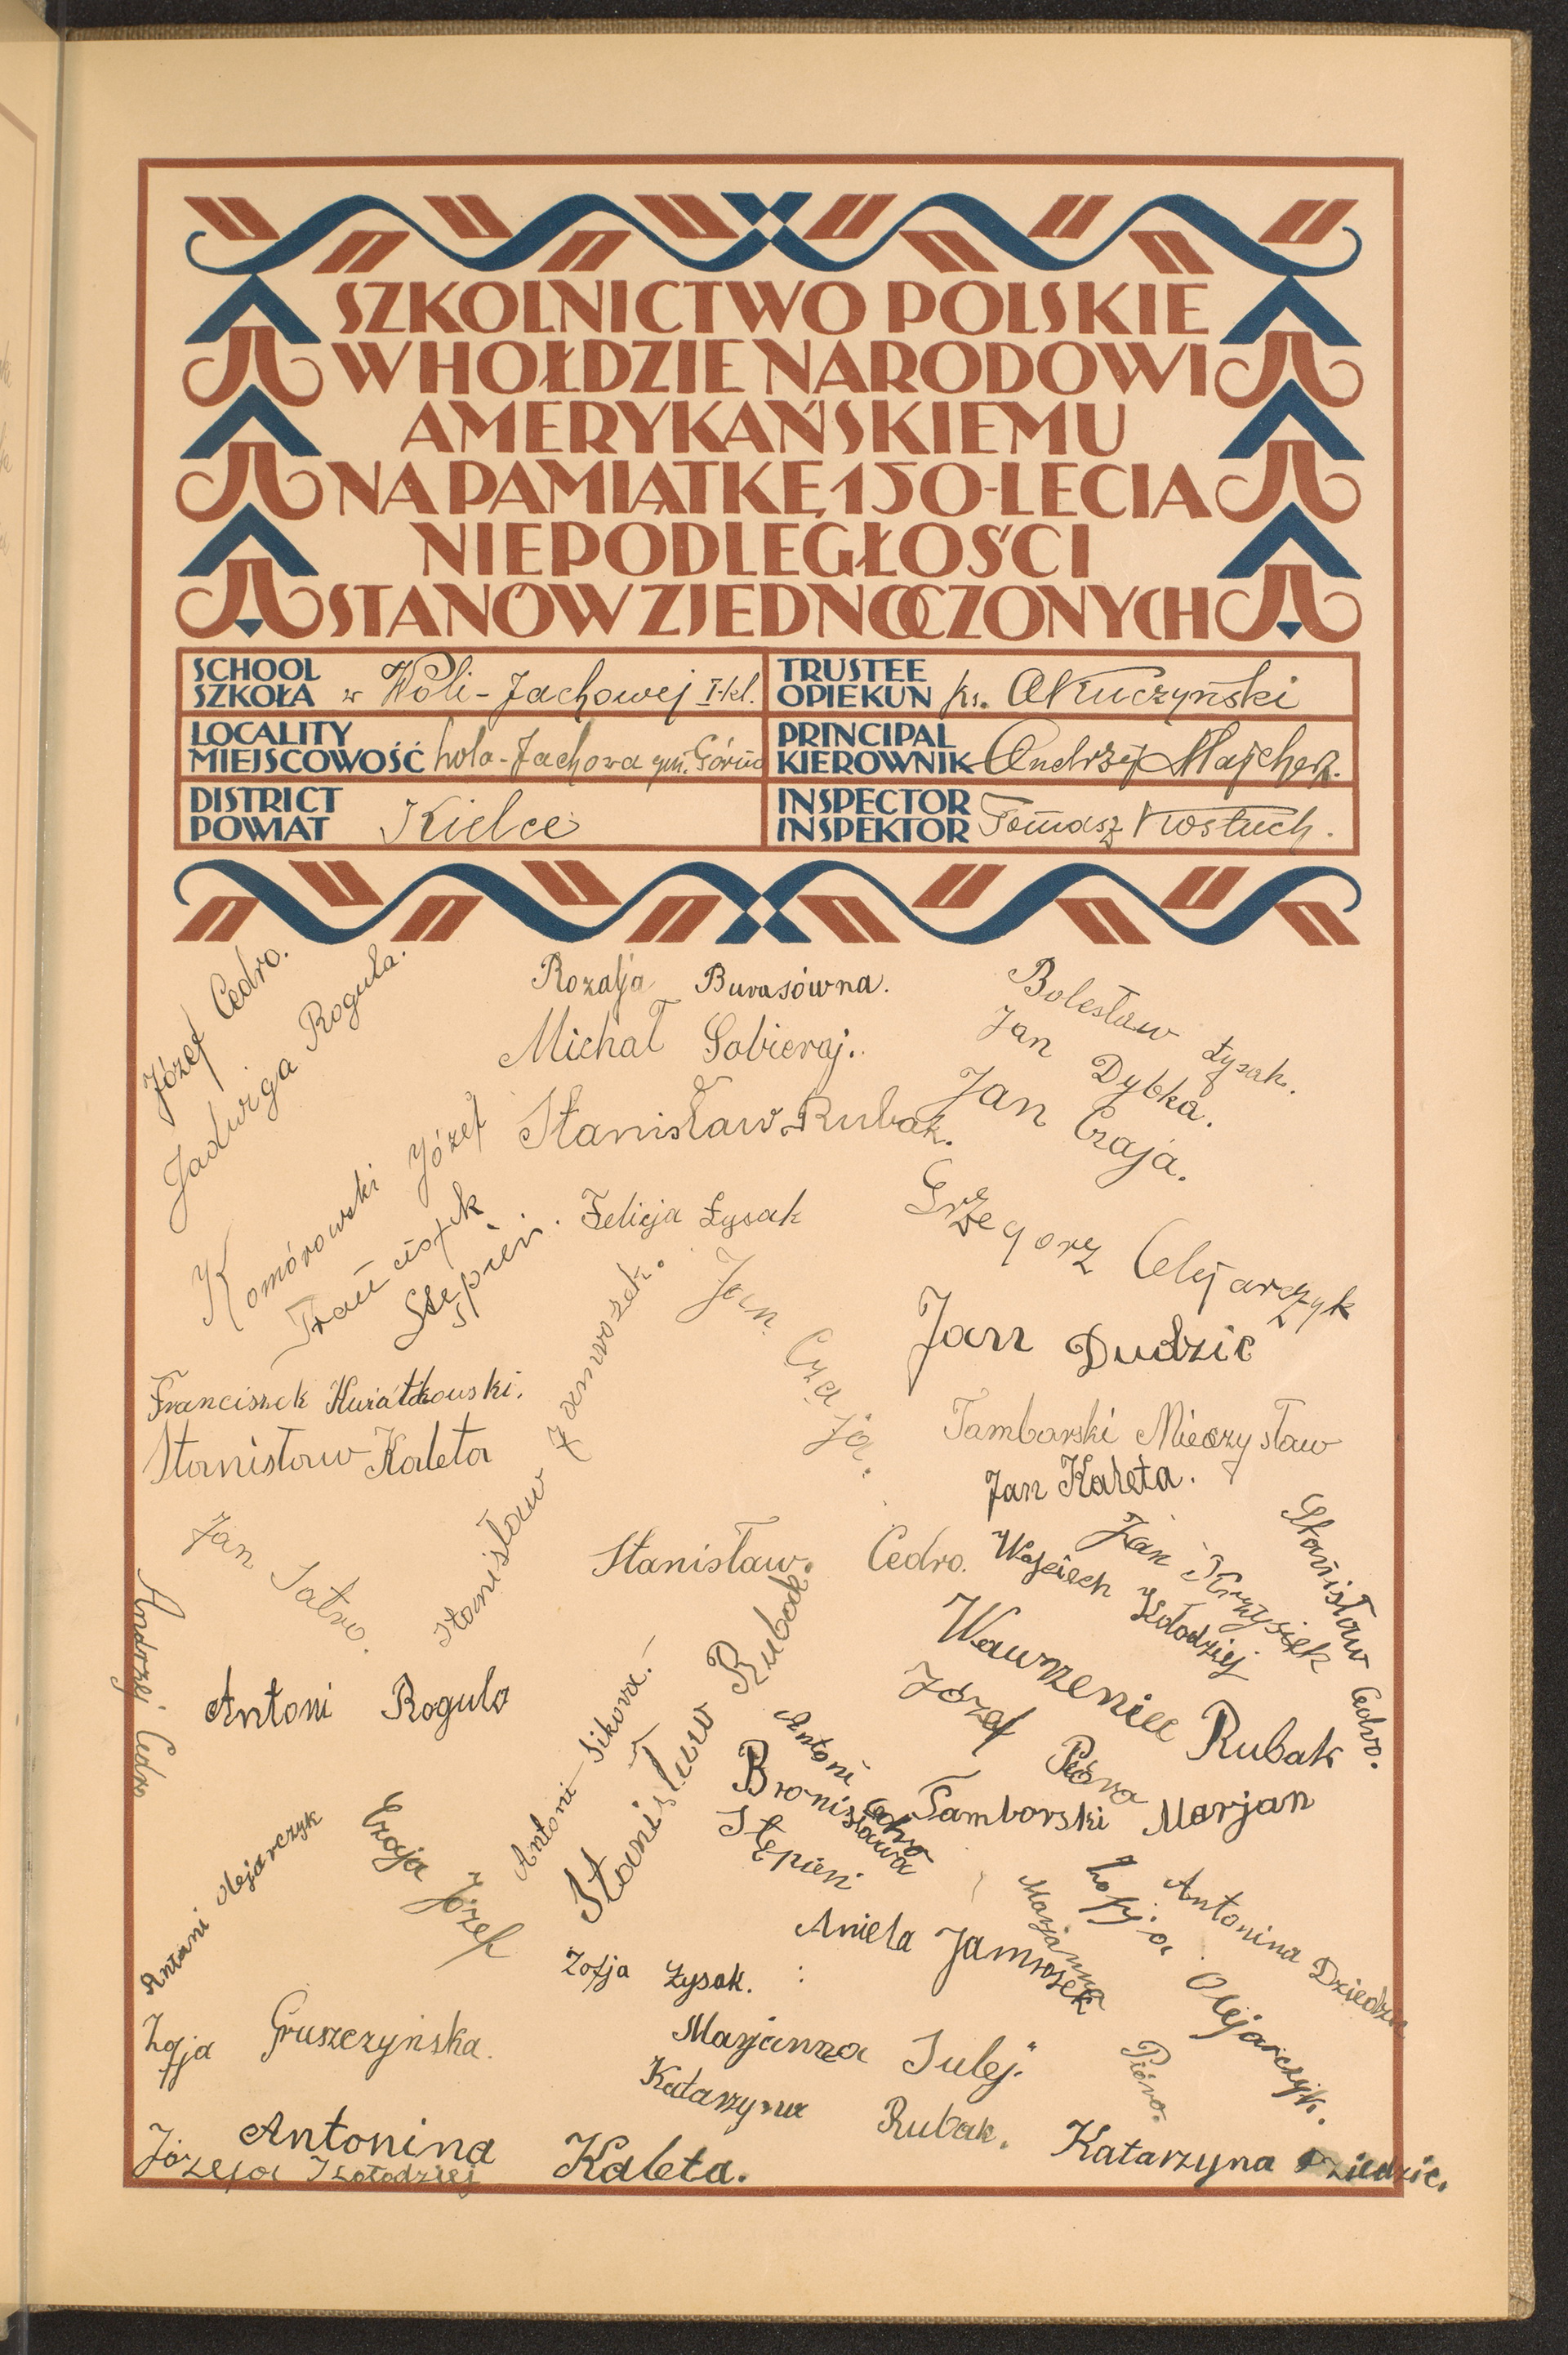 SZKOLNICTWO POLSKIE
W HOŁDZIE NARODOWI
AMERYKAŃSKIEMU
NA PAMIĄTKĘ 150-LECIA
NIEPODLEGŁOŚCI
STANÓW ZJEDNOCZONYCH
SCHOOL
SZKOŁA w Woli-Jachowej I-kl.
TRUSTEE
OPIEKUN ks. A Kuczyński
LOCALITY
MIEJSCOWOŚĆ Wola-Jachowa gm. Górno
PRINCIPAL
KIEROWNIK Andrzej Majcher.
DISTRICT
POWIAT Kielce
INSPECTOR
INSPEKTOR Tomasz Kostuch.
Józef Cedro.
Jadwiga Roguła.
Rozalja Burasówna.
Michał Sobieraj.
Stanisław Rubak.
Bolesław Łysak.
Jan Dybka.
Jan Czaja.
Komórowski Józef
Franciszek
Stępień.
Felicja Łysak
Grzegorz Olejarczyk
Jan Dudzic
Jan Czaja.
Stanisław Jamrozek.
Franciszek Kwiatkowski.
Stanisław Kaleta
Tamborski Mieczysław
Jan Kaleta.
Jan Satro.
Stanisław Cedro.
Wojciech Kołodziej
Jan Krzysiek
Stanisław Cedro.
Andrzej Cedro
Antoni Roguło
Antoni Sikora.
Stanisław Rubak.
Wawrzeniec Rubak
Józef Pióro
Antoni Cedro
Bronisława
Stępień
Tamborski Marjan
Antoni Olejarczyk
Czaja Józef
Aniela Jamrozek
Marjanna Pióro.
Zofija Olejarczyk.
Antonina Dziedzic
Zofja Łysak.
Zofja Gruszczyńska.
Marjanna Sulej.
Katarzyna Rubak.
Antonina Kaleta.
Józefa Kołodziej
Katarzyna Dziedzic.